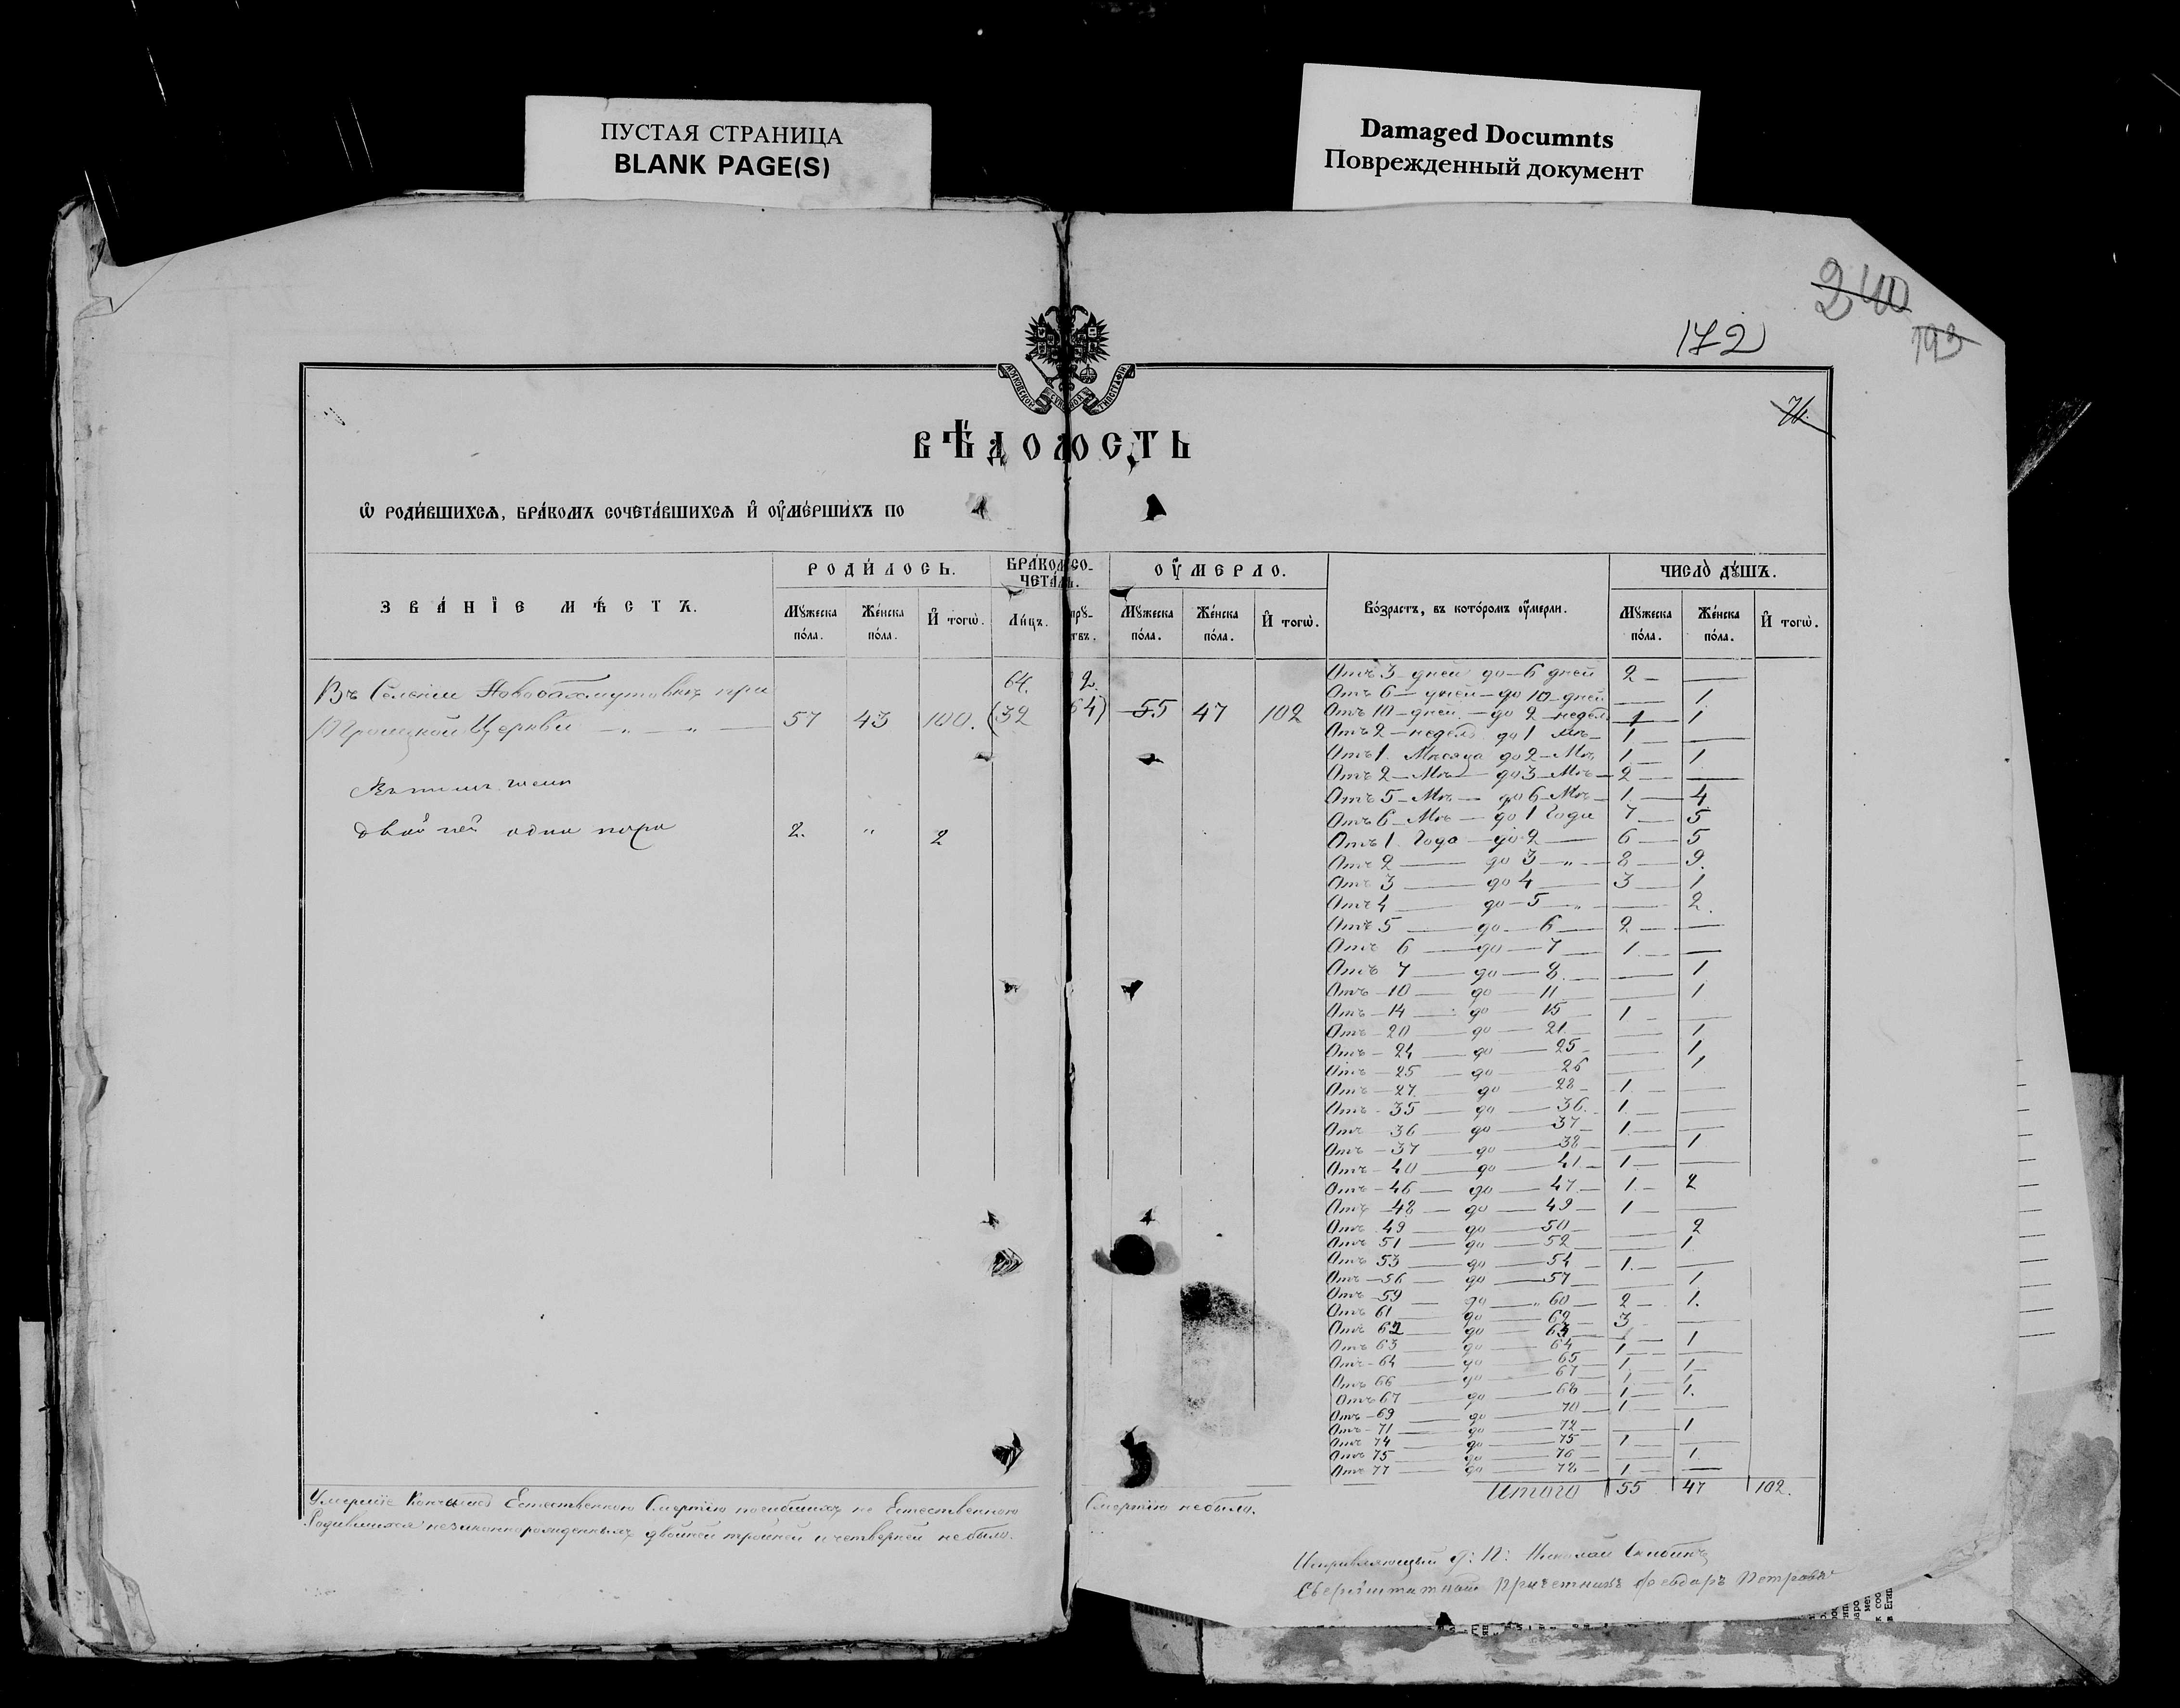 ПУСТАЯ СТРАНИЦА
BLANK PAGE(S)
Damaged Documnts
Поврежденный документ
240
193
172
МОСКОВСКОЙ СѴНОДАЛ ТИПОГРАФІИ
ВѢДОМОСТЬ
Ѡ РОДИ́ВШИХСѦ, БРА́КОМЪ СОЧЕТА́ВШИХСѦ И҆ ОУ҆МЕ́РШИХЪ ПО
ЗВА́НІЕ МѢ́СТЪ. РОДИ́ЛОСЬ. БРА́КОМ СО- ЧЕТА́Л. ОУ҆МЕРЛО. Во́зрастъ, въ кото́ромъ оу҆́мерли. ЧИСЛО̀ ДУ́ШЪ.
Мꙋ́жеска по́ла. Же́нска по́ла. И҆ тогѡ̀. Ли́цъ. прꙋ- твъ. Мꙋ́жеска по́ла. Же́нска по́ла. И҆ тогѡ̀. Мꙋ́жеска по́ла. Же́нска по́ла. И҆ тогѡ̀.
Въ Селеніи Новобахмутовкѣ при 64. 2.
Троицкой Церкви — „ — „ — 57 43 100. (32 64) 55 47 102
Въ томъ числѣ
двойней одна пара 2. „ 2
Отъ 3 дней до 6 дней 2 —
Отъ 6 — дней — до 10 дней — 1.
Отъ 10 — дней — до 2 недѣл 1 1
Отъ 2 — недѣль до 1 Мѣ — 1 —
Отъ 1. Мѣсяца до 2 — Мѣ 1 1
Отъ 2 — Мѣ — до 3 — Мѣ — 2 —
Отъ 5 — Мѣ — до 6 — Мѣ — 1 4
Отъ 6 — Мѣ — до 1 Года 7 5
Отъ 1. Года — до 2 — 6 5
Отъ 2 — до 3 — „ — 8 9.
Отъ 3 — до 4 — 3 1
Отъ 4 — до — 5 „ — 2.
Отъ 5 — до — 6 — 2 —
Отъ 6 — до — 7 — 1. —
Отъ 7 — до — 8. — 1
Отъ — 10 — до — 11 — 1
Отъ — 14 — до — 15 — 1 —
Отъ — 20 — до — 21. — 1
Отъ — 24 — до — 25 — 1
Отъ — 25 — до — 26 — 1
Отъ — 27. — до — 28 — 1. —
Отъ — 35 — до — 36. — 1. —
Отъ — 36 — до — 37 — 1. —
Отъ — 37 — до — 38 — 1
Отъ — 40 — до — 41 — 1 —
Отъ — 46 — до — 47. — 1. — 2
Отъ — 48 — до — 49 — 1 —
Отъ 49 — до — 50 — 2
Отъ 51 — до — 52 — 1
Отъ 53 — до — 54 — 1. —
Отъ — 56 — до — 57 — 1
Отъ — 59 — до — „ 60 — 2 — 1.
Отъ 61 — до — 62 — 3 —
Отъ 62 — до — 63 — 1 — 1
Отъ 63 — до — 64 — 1 —
Отъ — 64 — до — 65 — 1 1
Отъ 66 — до — 67 — 1 1
Отъ 67 — до — 68 — 1 1.
Отъ — 69 — до — 70 — 1 —
Отъ — 71 — до — 72 — 1
Отъ 74 — до — 75 — 1 —
Отъ 75 — до — 76 — 1.
Отъ 77 — до — 78 — 1 —
Итого 55 47 102.
Умершіе Естественною Смертію погибшихъ не Естественною Смертію небыло.
Родившихся незаконнорожденныхъ двойней тройней и четверней небыло.
Исправляющій д: П: Николай
Сверхштатный Причетникъ Феодоръ Петровъ